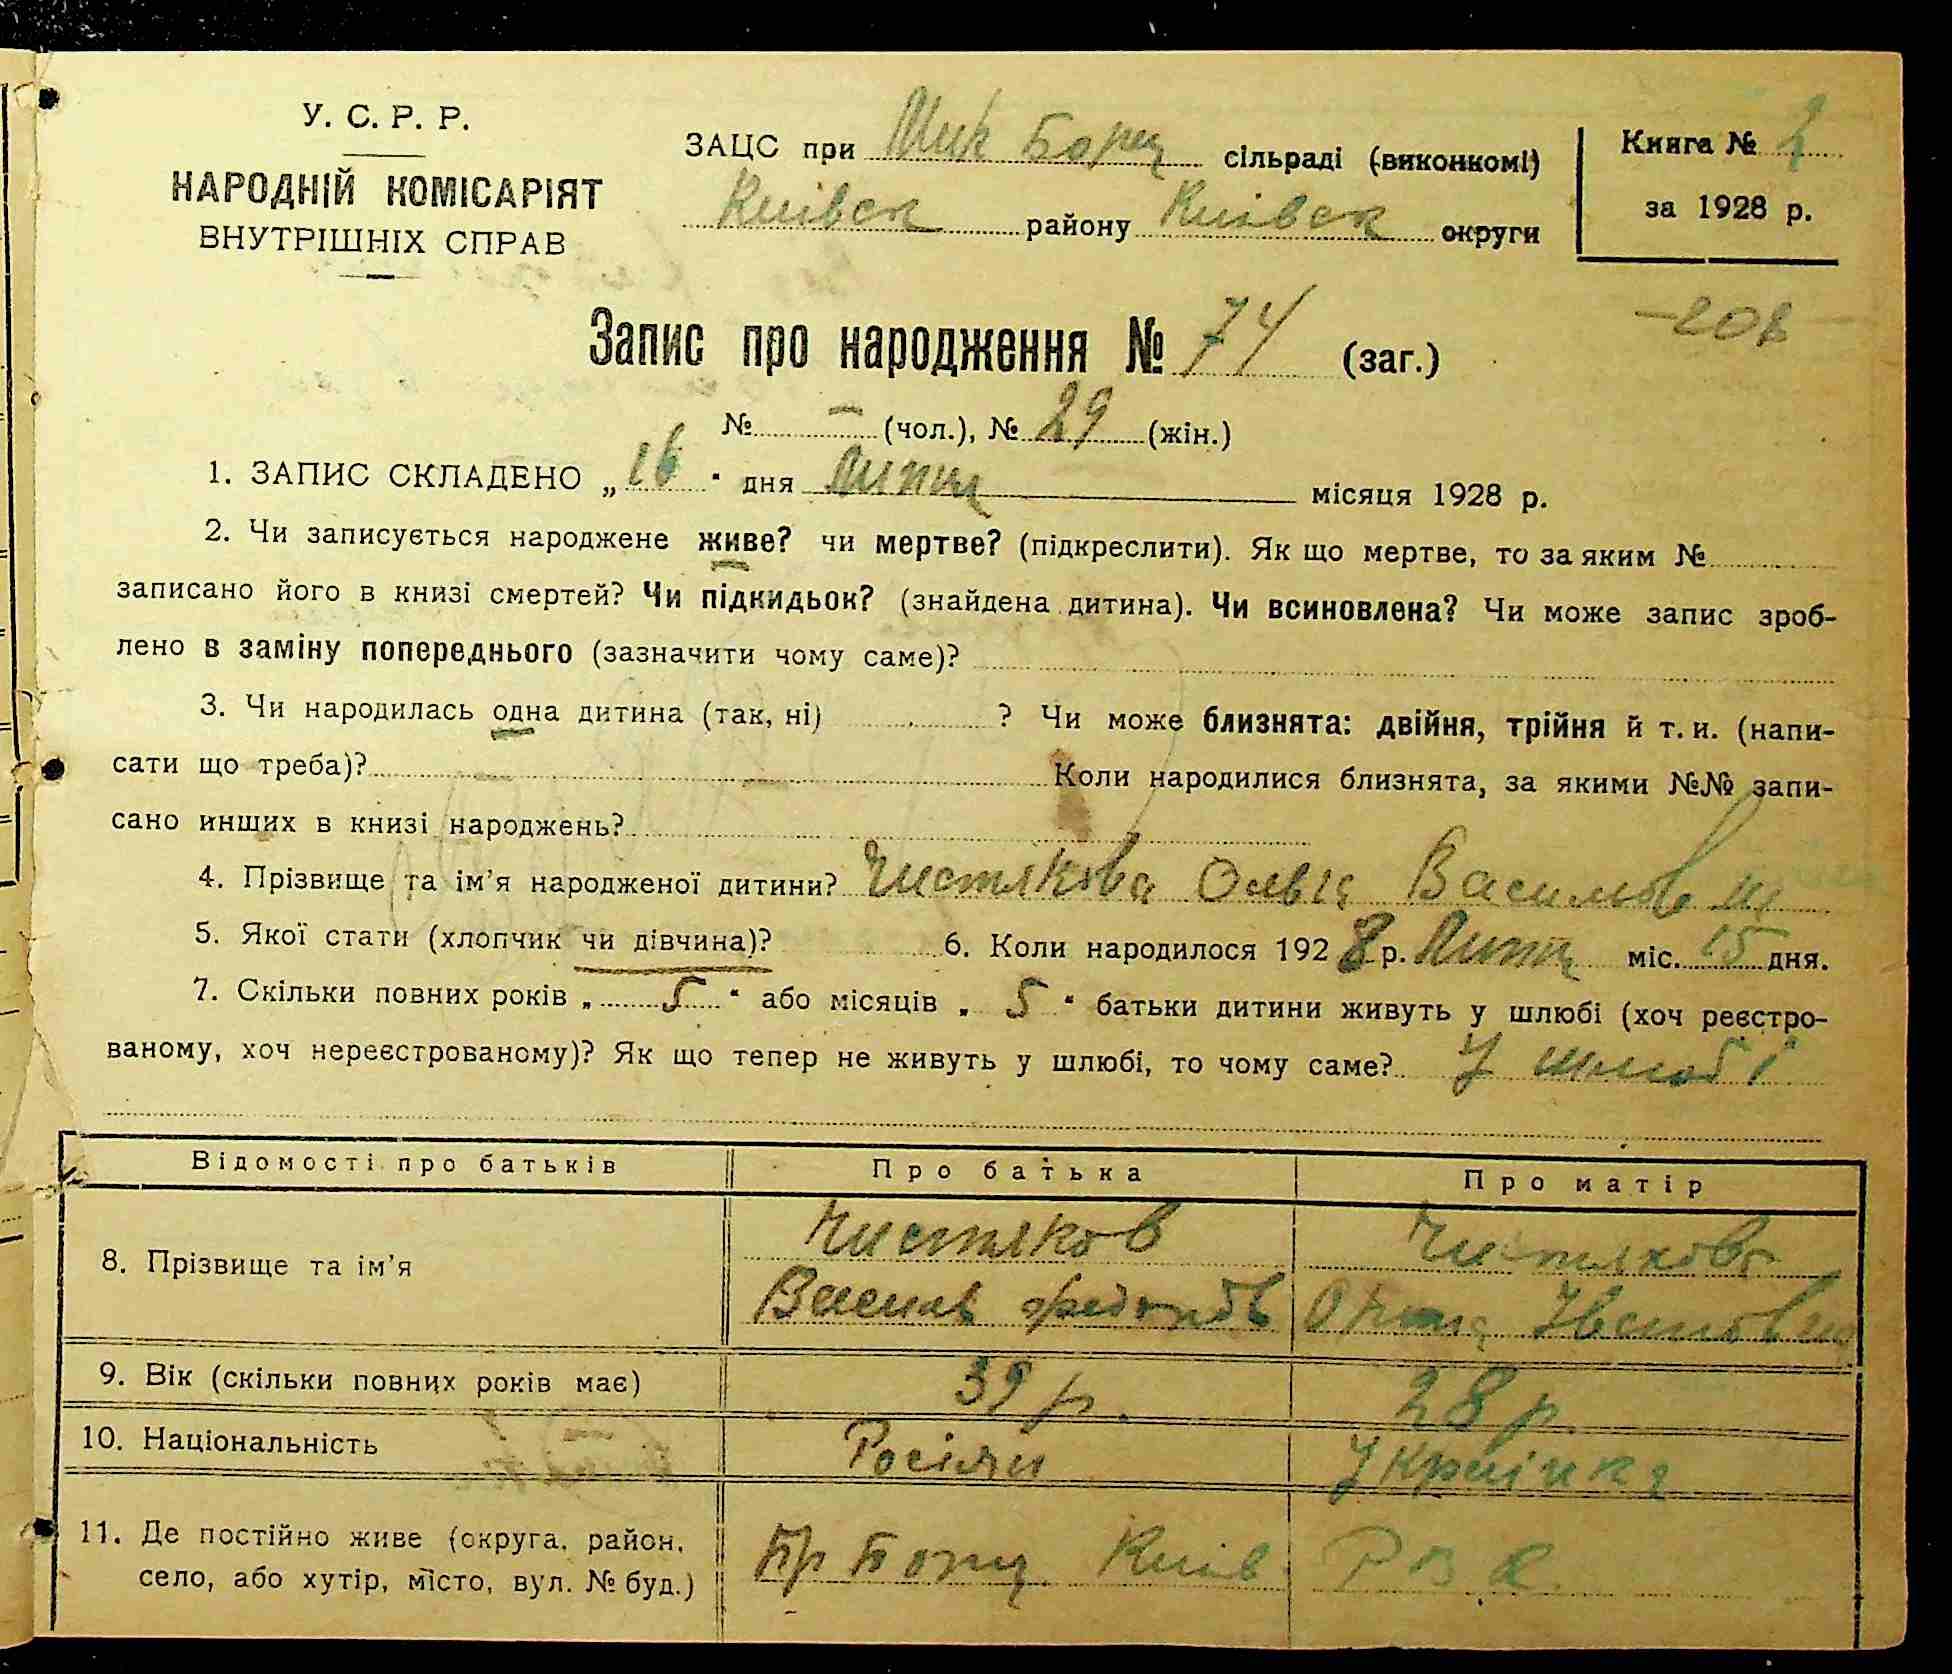 У. С. Р. Р.
НАРОДНІЙ КОМІСАРІЯТ
ВНУТРІШНІХ СПРАВ
ЗАЦС при Мик Борщ сільраді (виконкомі)
Київськ району Київськ округи
Книга № 2
за 1928 р.
Запис про народження № 74 (заг.)
№ — (чол.), № 29 (жін.)
1. ЗАПИС СКЛАДЕНО „16“ дня Липця місяця 1928 р.
2. Чи записується народжене живе? чи мертве? (підкреслити). Як що мертве, то за яким №
записано його в книзі смертей? Чи підкидьок? (знайдена дитина). Чи всиновлена? Чи може запис зроб-
лено в заміну попереднього (зазначити чому саме)?
3. Чи народилась одна дитина (так, ні) ? Чи може близнята: двійня, трійня й т. и. (напи-
сати що треба)? Коли народилися близнята, за якими №№ запи-
сано инших в книзі народжень?
4. Прізвище та ім'я народженої дитини? Чистякова Ольга
5. Якої стати (хлопчик чи дівчина)? 6. Коли народилося 1928 р. Липця міс. 15 дня.
7. Скільки повних років „ 5 “ або місяців „ 5 “ батьки дитини живуть у шлюбі (хоч реєстро-
ваному, хоч нереєстрованому)? Як що тепер не живуть у шлюбі, то чому саме? У шлюбі
Відомості про батьків Про батька Про матір
8. Прізвище та ім'я Чистяков Чистякова
9. Вік (скільки повних років має) 39 р. 28 р.
10. Національність Росіян Українка
11. Де постійно живе (округа, район,
село, або хутір, місто, вул. № буд.) Київ. Р В К.